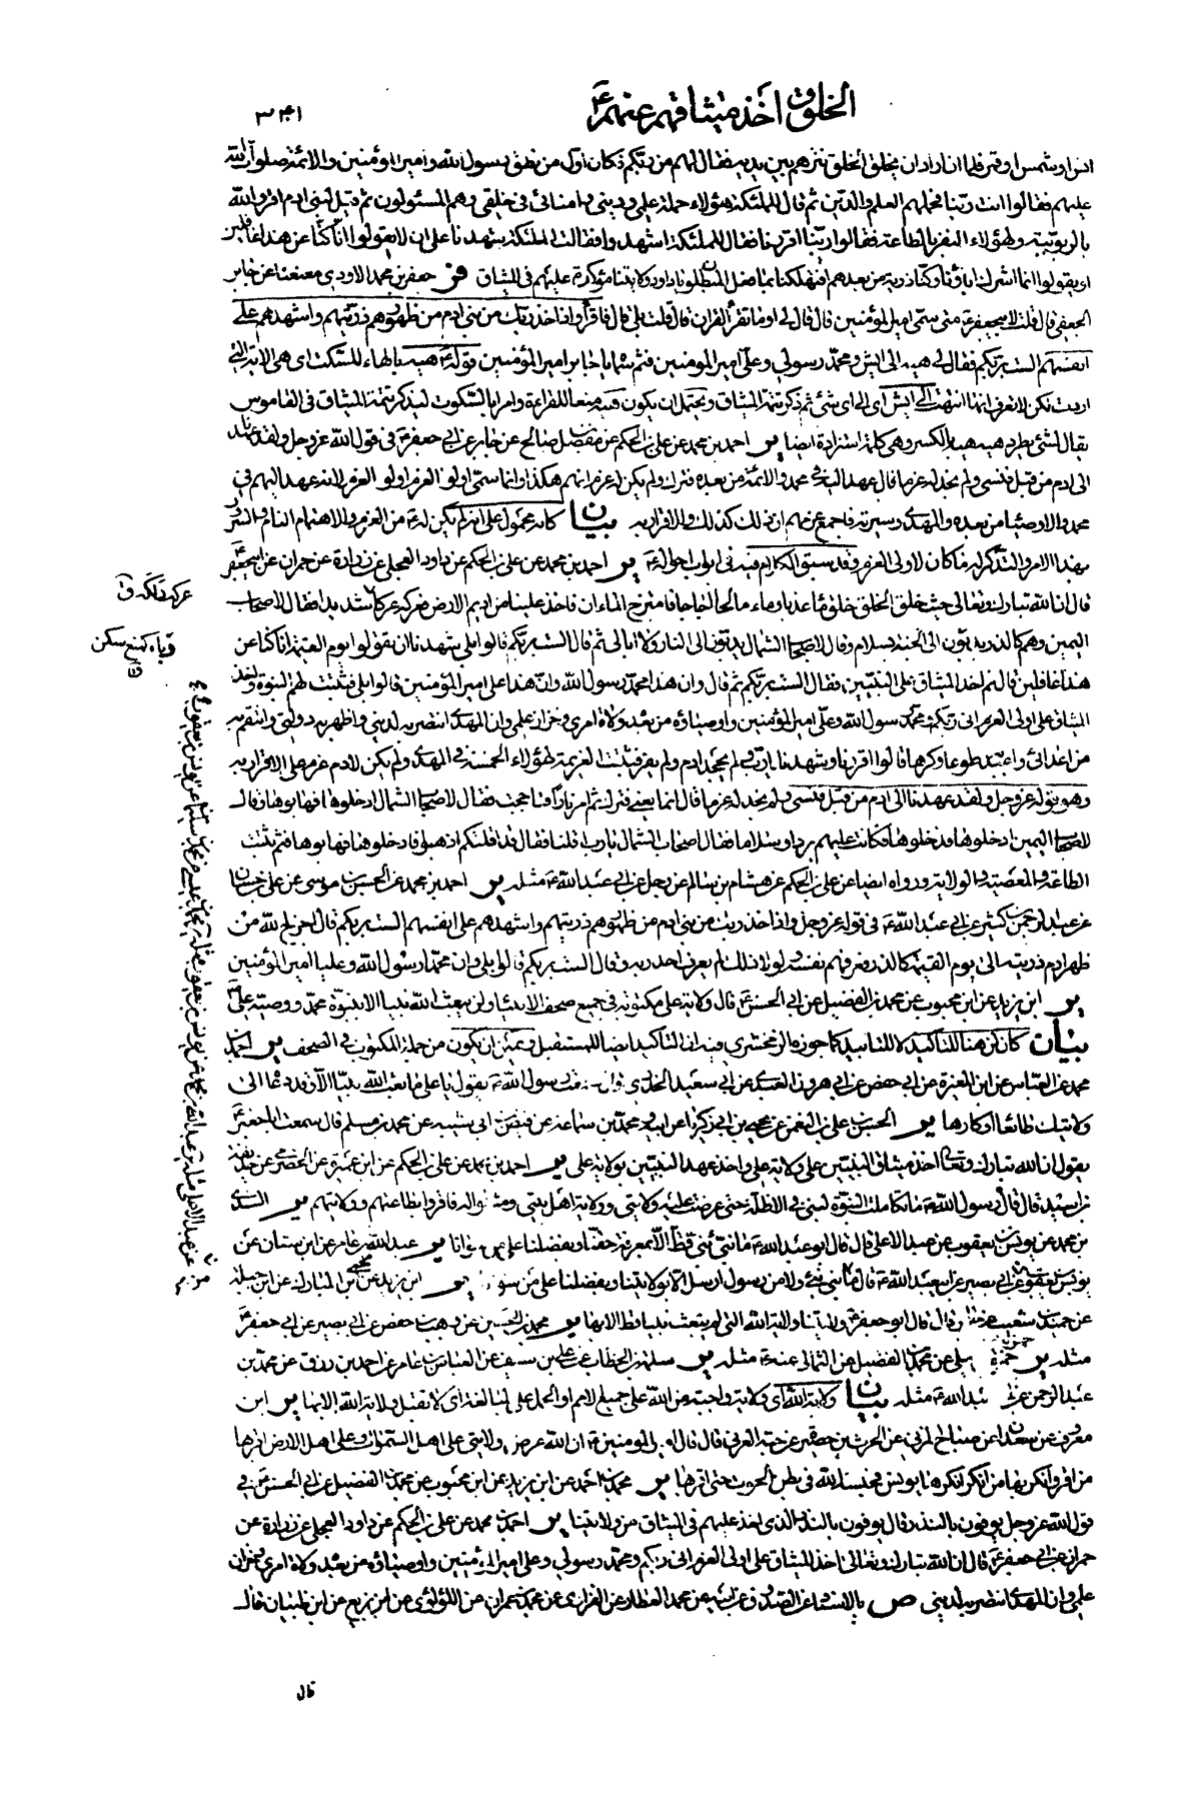 الخلق و اخذ میثاقهم عنهم ع
۳۴۱
انس او شمس او قمر فلما ان اراد ان يخلق الخلق نثرهم بين يديه فقال لهم من ربكم فكان اول من نطق رسول الله و امير المؤمنين والائمة صلوات الله
عليهم فقالوا انت ربنا فحملهم العلم والدين ثم قال للملئكة هؤلاء حملة علمي وديني وامنائي في خلقي وهم المسئولون ثم قيل لبني ادم اقروا لله
بالربوبية ولهؤلاء النفر بالطاعة فقالوا ربنا اقررنا فقال للملئكة اشهدوا فقالت الملئكة شهدنا على ان لا يقولوا انا كنا عن هذا غافلين
او يقولوا انما اشرك اباؤنا وكنا ذرية من بعدهم افتهلكنا بما فعل المبطلون يا داود ولايتنا مؤكدة عليهم في الميثاق فر جعفر بن محمد الاودي معنعنا عن جابر
الجعفي قال قلت لابي جعفر ع متى سمي امير المؤمنين قال قال لي اوما تقرأ القران قال قلت بلى قال فاقرأ واذ اخذ ربك من بني ادم من ظهورهم ذريتهم واشهدهم على
انفسهم الست بربكم فقال لي هيه الى ايش ومحمد رسولي وعلي امير المومنين فثم سماه يا جابر امير المؤمنين قوله ع هيه بالهاء للسكت اي هي الاية التي
اردت لكن لا تعرف انها انتهت الى ايش اي الى اي شئ ثم ذكر تتمة الميثاق ويحتمل ان يكون هيه منعا للقراءة وامرا بالسكوت ليذكر تتمة الميثاق في القاموس
يقال لشئ يطرد هيه هيه بالكسر وهي كلمة استزادة ايضا ير احمد بن محمد عن علي بن الحكم عن مفضل بن صالح عن جابر عن ابي جعفر ع في قول الله عز وجل ولقد عهدنا
الى ادم من قبل فنسي ولم نجد له عزما قال عهد اليه في محمد والائمة من بعده فترك ولم يكن له عزم انهم هكذا وانما سمي اولو العزم اولو العزم لانه عهد اليهم في
محمد والاوصيا من بعده والمهدي وسيرته فاجمع عزمهم ان ذلك كذلك والاقرار به بيان كانه محمول على انه لم يكن له ع من العزم والاهتمام التام والسرور
بهذا الامر والتذكر له ما كان لاولي العزم وقد سبق الكلام فيه في ابواب احواله ع ير احمد بن محمد عن علي بن الحكم عن داود العجلي عن زرارة عن حمران عن ابي جعفر
قال ان الله تبارك وتعالى حيث خلق الخلق خلق ماء عذبا وماء مالحا اجاجا فامتزج الماءان فاخذ طينا من اديم الارض فعركه عركا شديدا فقال لاصحاب
اليمين وهم كالذر يدبون الى الجنة بسلام وقال لاصحاب الشمال يدبون الى النار ولا ابالي ثم قال الست بربكم قالوا بلى شهدنا ان تقولوا يوم القيمة انا كنا عن
هذا غافلين قال ثم اخذ الميثاق على النبيين فقال الست بربكم ثم قال وان هذا محمد رسول الله وان هذا علي امير المؤمنين قالوا بلى فثبتت لهم النبوة واخذ
الميثاق على اولي العزم اني ربكم ومحمد رسول الله وعلي امير المؤمنين واوصياؤه من بعده ولاة امري وخزان علمي وان المهدي انتصر به لديني واظهر به دولتي وانتقم به
من اعدائي واعبد به طوعا وكرها قالوا اقررنا وشهدنا يا رب ولم يجحد ادم ولم يقر فثبتت العزيمة لهؤلاء الخمسة في المهدي ولم يكن لادم عزم على الاقرار به
وهو قوله عز وجل ولقد عهدنا الى ادم من قبل فنسي ولم نجد له عزما قال انما يعني فترك ثم امر نارا فاججت فقال لاصحاب الشمال ادخلوها فهابوها وقال
لاصحاب اليمين ادخلوها فدخلوها فكانت عليهم بردا وسلاما فقال اصحاب الشمال يا رب اقلنا فقال قد اقلتكم اذهبوا فادخلوها فهابوها فثم ثبتت
الطاعة والمعصية والولاية ورواه ايضا عن علي بن الحكم عن هشام بن سالم عن رجل عن ابي عبد الله ع مثله ير احمد بن محمد عن الحسن بن موسى عن علي بن حسان
عن عبد الرحمن بن كثير عن ابي عبد الله ع في قوله عز وجل واذ اخذ ربك من بني ادم من ظهورهم ذريتهم واشهدهم على انفسهم الست بربكم قال اخرج الله من
ظهر ادم ذريته الى يوم القيمة كالذر فعرفهم نفسه ولولا ذلك لم يعرف احد ربه وقال الست بربكم قالوا بلى وان محمدا رسول الله وعليا امير المؤمنين
ير ابن يزيد عن ابن محبوب عن محمد بن الفضيل عن ابي الحسن ع قال ولاية علي مكتوبة في جميع صحف الانبياء ولن يبعث الله نبيا الا بنبوة محمد ووصيه علي ع
بيان كان لن هنا للتاكيد لا للتابيد كما جوزه الزمخشري فيه ان التاكيد ايضا للمستقبل ويمكن ان يكون من جملة المكتوب في الصحف ير احمد
محمد عن العباس عن ابن المغيرة عن ابي حفص عن ابي هرون العبدي عن ابي سعيد الخدري قال سمعت رسول الله ص يقول يا علي ما بعث الله نبيا الا وقد دعاه الى
ولايتك طائعا او كارها ير الحسن بن علي بن النعمن عن يحيى بن ابي زكريا عن ابيه ومحمد بن سماعة عن فيض بن ابي شيبة عن محمد بن مسلم قال سمعت ابا جعفر ع
يقول ان الله تبارك وتعالى اخذ ميثاق النبيين على ولاية علي واخذ عهد النبيين بولاية علي ير احمد بن محمد عن علي بن الحكم عن ابن عميرة عن الحضرمي عن حذيفة
بن اسيد قال قال رسول الله ص ما تكاملت النبوة لنبي في الاظلة حتى عرضت عليه ولايتي وولاية اهل بيتي ومثلوا له فاقروا بطاعتهم وولايتهم ير السندي
بن محمد عن يونس بن يعقوب عن عبد الاعلى قال قال ابو عبد الله ع ما نبئ نبي قط الا بمعرفة حقنا وبفضلنا على من سوانا ير عبد الله بن عامر عن ابن سنان عن
يونس بن يعقوب عن ابي بصير عن ابي عبد الله ع قال ما من نبي نبئ ولا من رسول ارسل الا بولايتنا وبفضلنا على من سوانا ير ابن يزيد عن يحيى بن المبارك عن ابن جبلة
عن حميد بن شعيب عن جابر قال قال ابو جعفر ع ولايتنا ولاية الله التي لم يبعث نبيا قط الا بها ير محمد بن الحسين عن وهيب بن حفص عن ابي بصير عن ابي جعفر ع
مثله ير حمزة بن يعلى عن محمد بن الفضيل عن الثمالي عنه ع مثله ير سلمة بن الخطاب عن علي بن سيف عن العباس بن عامر عن احمد بن رزق عن محمد بن
عبد الرحمن عن ابي عبد الله ع مثله بيان ولاية الله اي ولاية واجبة من الله على جميع الامم او الحمل على المبالغة اي لا تقبل ولاية الله الا بها ير ابن
معروف عن سعدان عن صباح المزني عن الحرث بن حصيرة عن حبة العرني قال قال امير المومنين ع ان الله عرض ولايتي على اهل السموات وعلى اهل الارض اقر بها
من اقر وانكرها من انكر انكرها يونس فحبسه الله في بطن الحوت حتى اقر بها ير محمد بن احمد عن ابن يزيد عن ابن محبوب عن محمد بن الفضيل عن ابي الحسن ع في
قول الله عز وجل يوفون بالنذر قال يوفون بالنذر الذي اخذ عليهم في الميثاق من ولايتنا ير احمد بن محمد عن علي بن الحكم عن داود العجلي عن زرارة عن
حمران عن ابي جعفر ع قال ان الله تبارك وتعالى اخذ الميثاق على اولي العزم اني ربكم ومحمد رسولي وعلي امير المؤمنين واوصياؤه من بعده ولاة امري وخزان
علمي وان المهدي انتصر به لديني ص بالاسناد عن الصدوق عن ابيه عن محمد العطار عن الفزاري عن محمد بن عمران عن اللؤلؤي عن ابن بزيع عن ابن ظبيان قال
عركه دلكه ق
دباه كمنع سكن
ق
قال